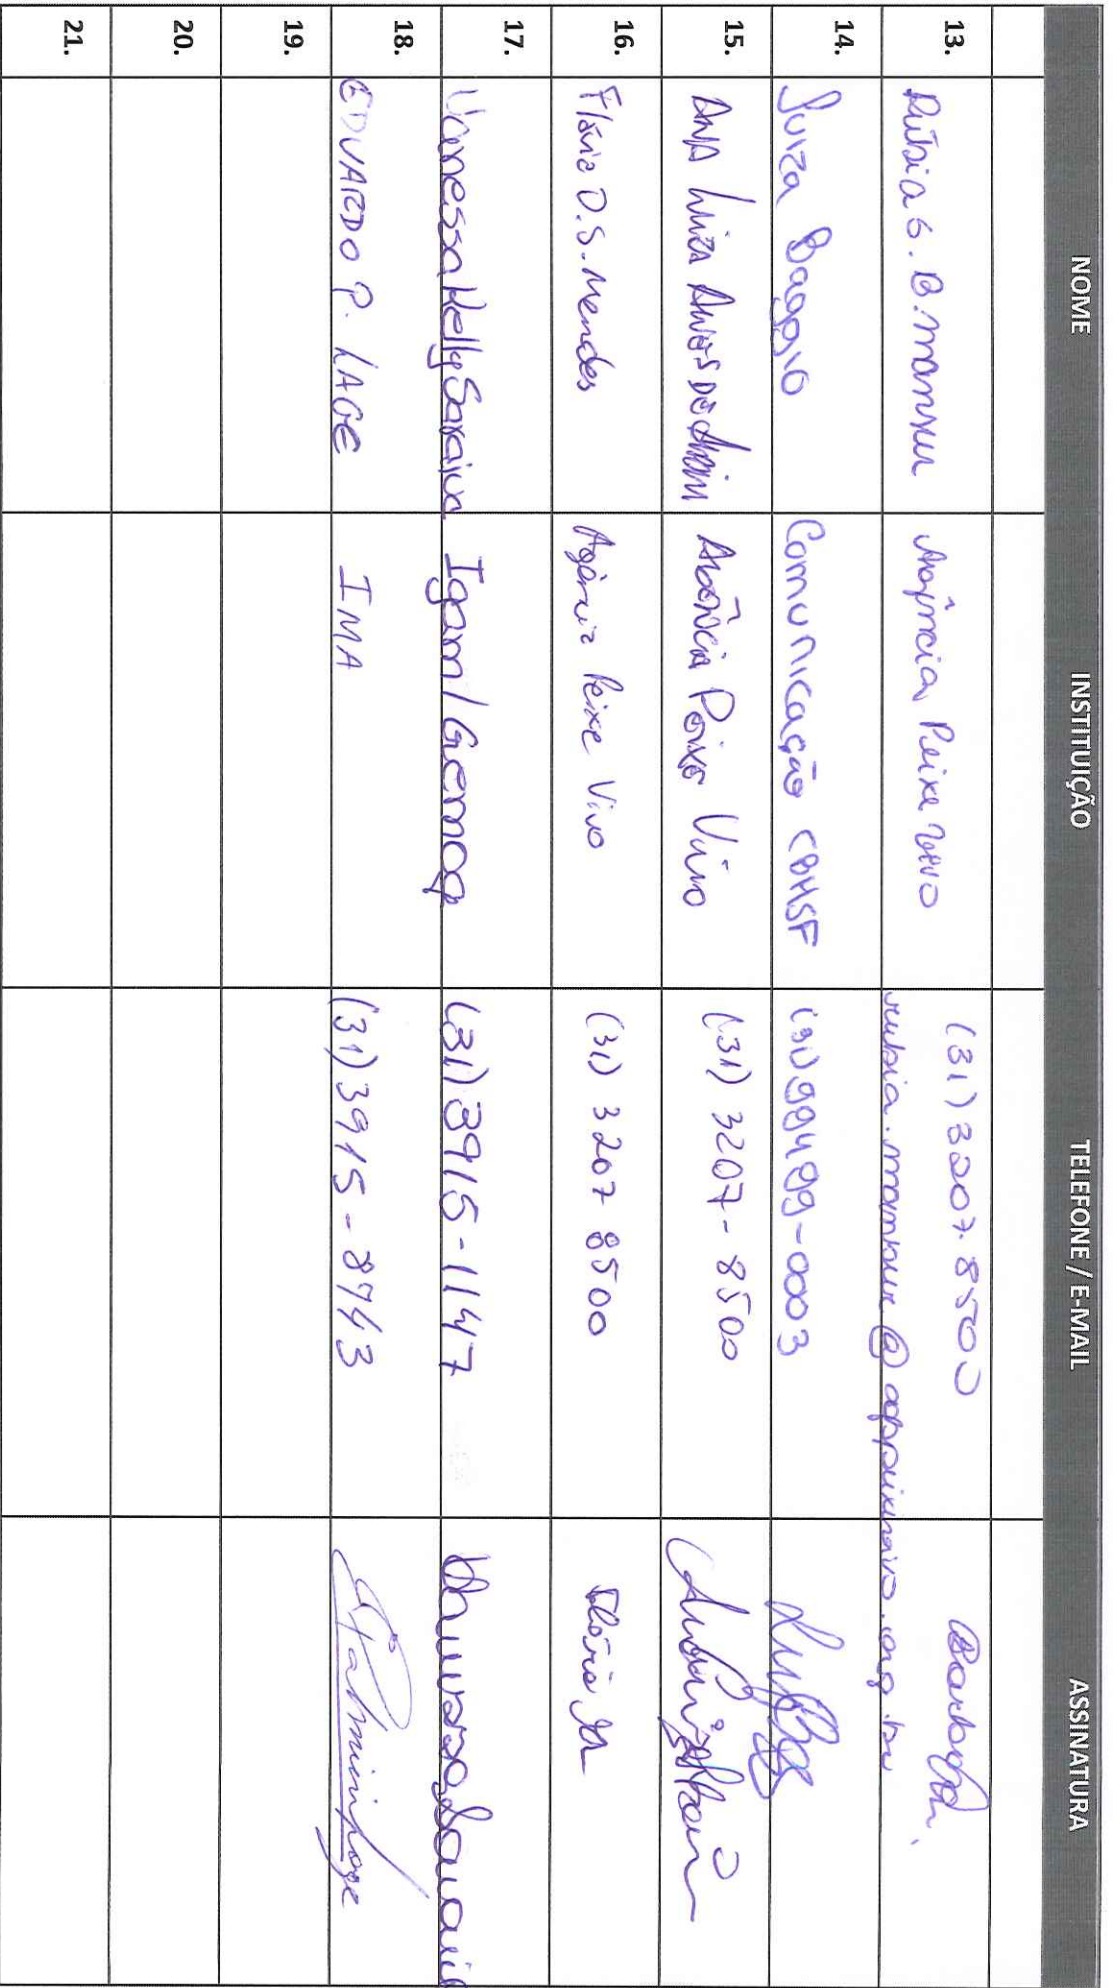 NOME INSTITUIÇÃO TELEFONE / E-MAIL ASSINATURA
13. Rúbia S. B. Mansur Agência Peixe Vivo (31) 3207.8500
rubia.mansur@agpeixevivo.org.br
14. Luiza Baggio Comunicação CBHSF (31) 99499-0003
15. ANA LUIZA ALVES DE Agência Peixe Vivo (31) 3207-8500
16. Flávia D. S. Mendes Agência Peixe Vivo (31) 3207 8500
17. Vanessa Kelly Saraiva Igam/Gemog (31) 3915-1147 Vanessa Saraiva
18. EDUARDO P. LAGE IMA (31) 3915-8743
19.
20.
21.